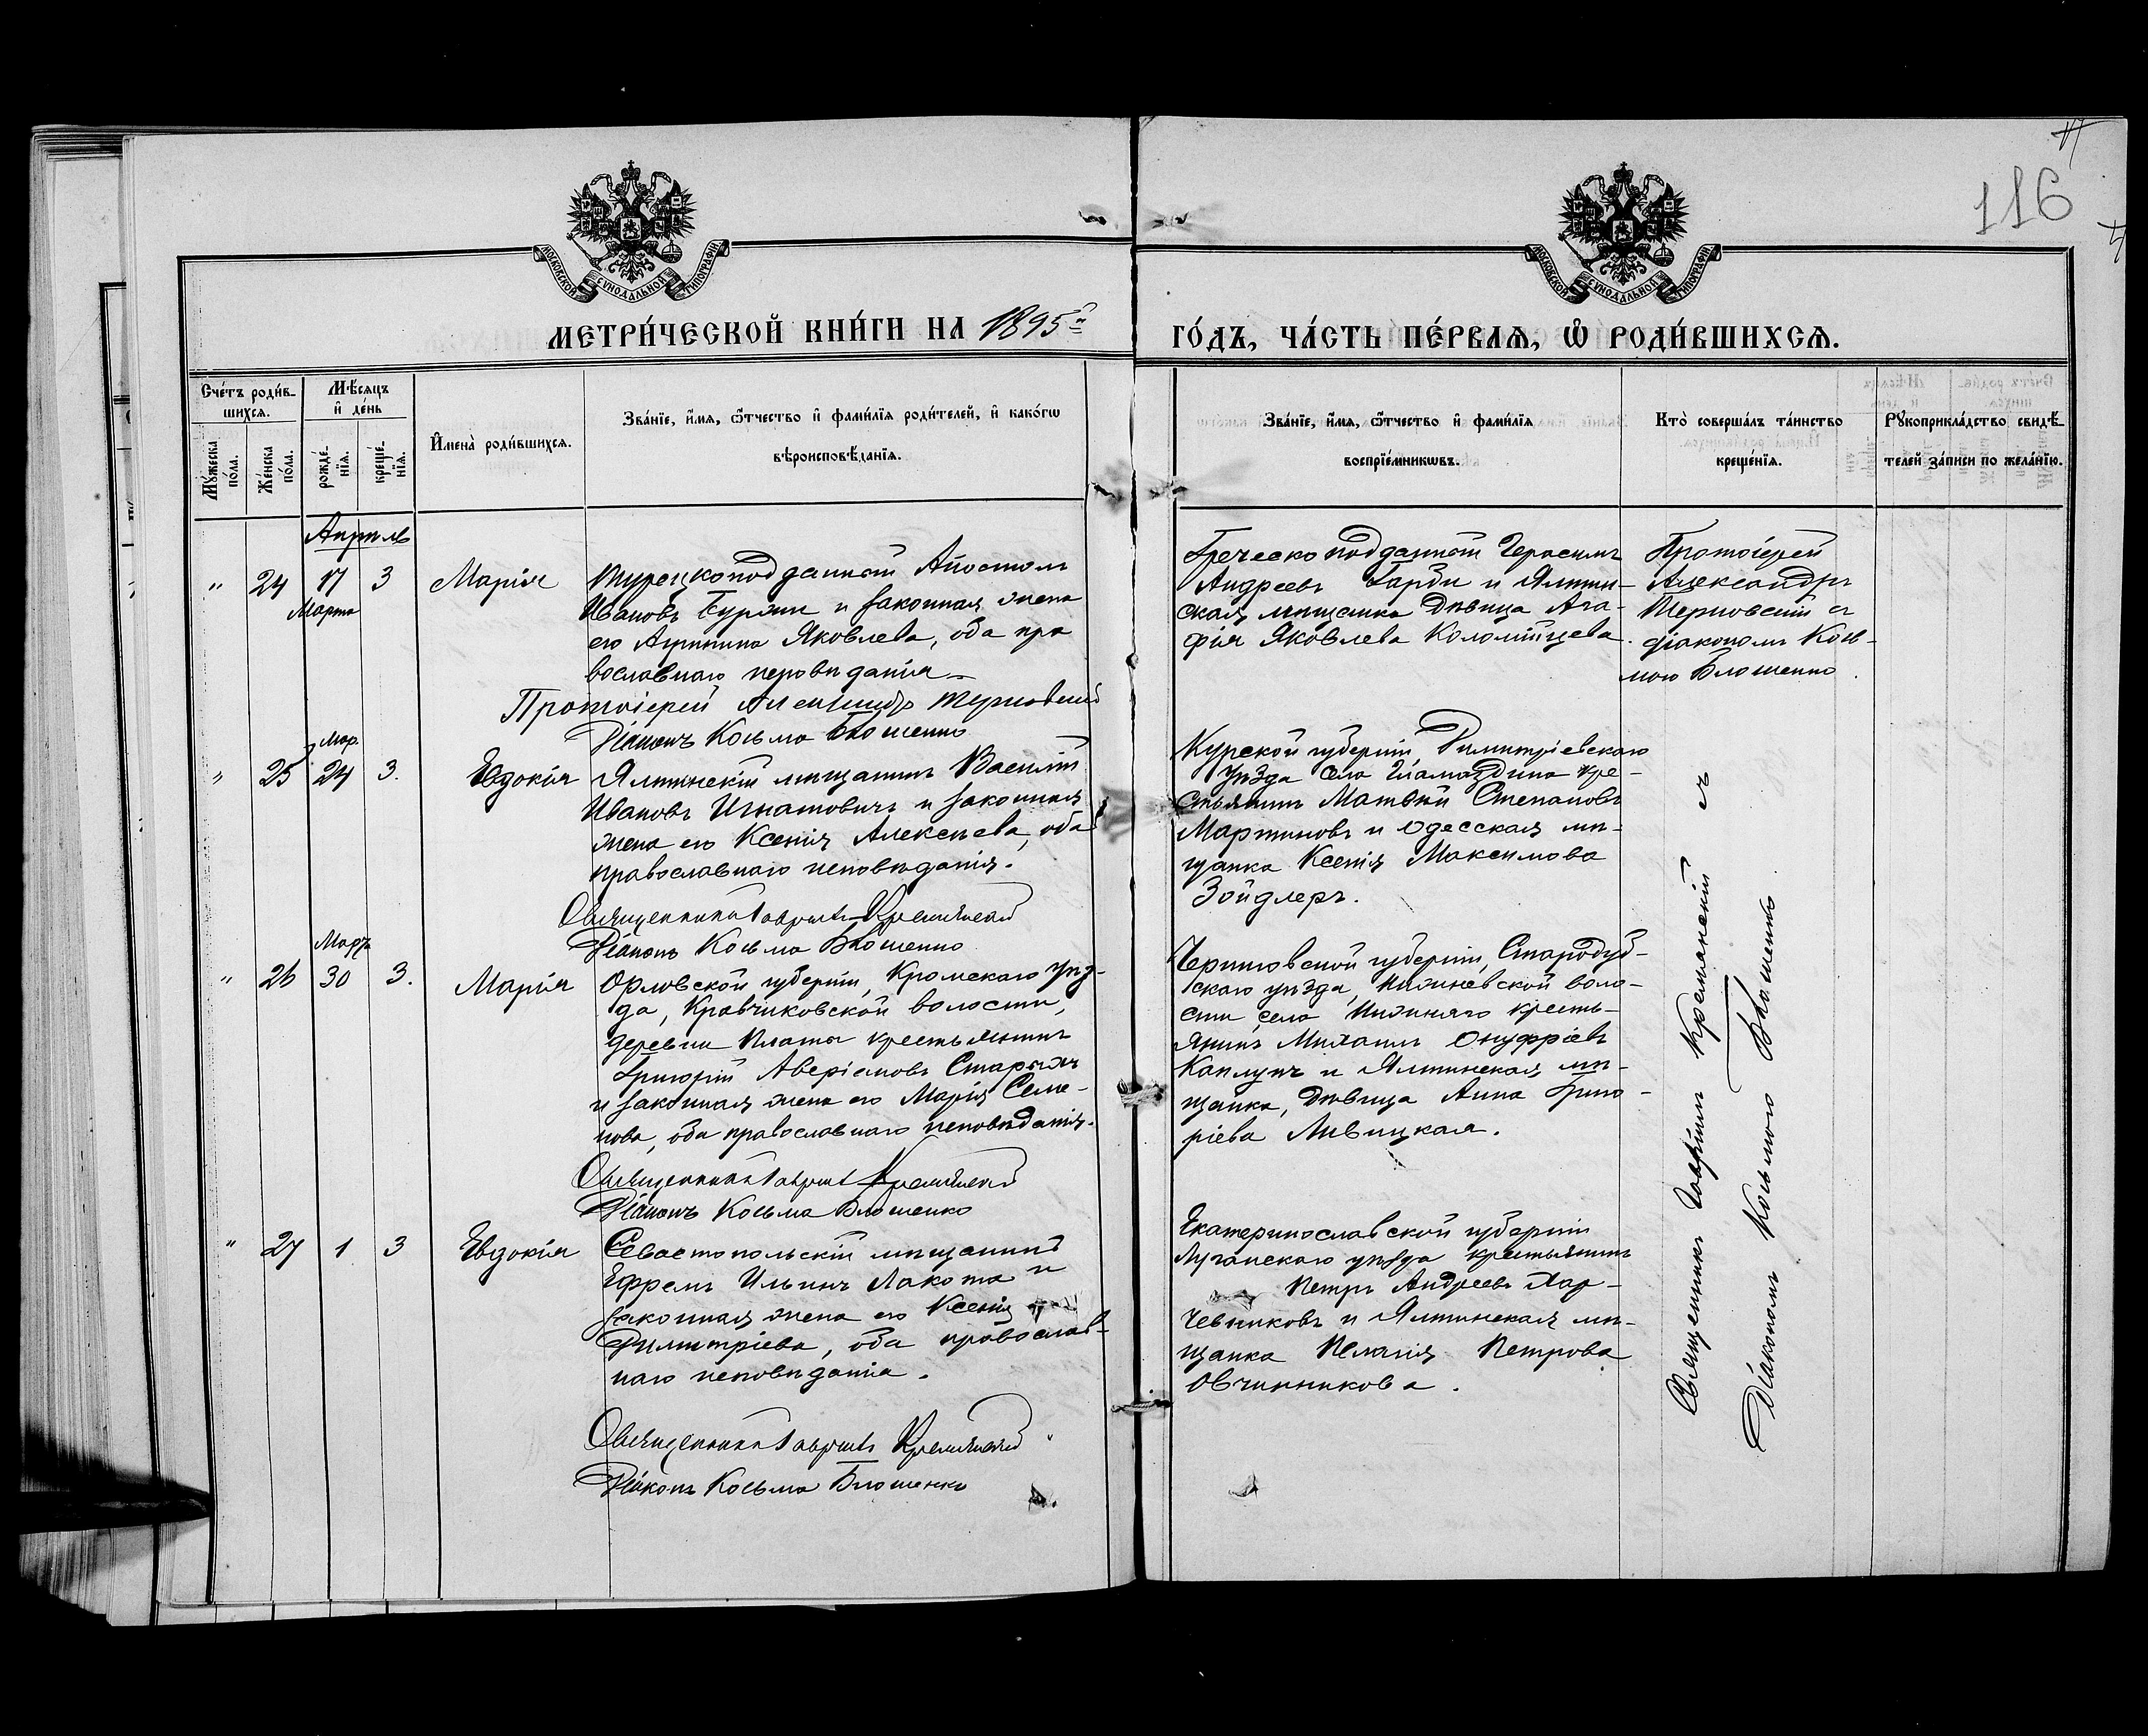 116
МОСКОВСКОЙ СѴНОДАЛЬНОЙ ТИПОГРАФІИ
МОСКОВСКОЙ СѴНОДАЛЬНОЙ ТИПОГРАФІИ
МЕТРИ́ЧЕСКОЙ КНИ́ГИ НА 1895й
ГО́ДЪ, ЧА́СТЬ ПЕ́РВАѦ, Ѡ҆ РОДИ́ВШИХСѦ.
Сче́тъ роди́в-
шихсѧ.
Мꙋ́жеска
по́ла.
Же́нска
по́ла.
Мѣ́сѧцъ
и҆ де́нь
рожде́-
нїѧ.
креще́-
нїѧ.
И҆мена̀ роди́вшихсѧ.
Зва́нїе, и҆́мѧ, ѻ҆́тчество и҆ фами́лїѧ роди́телей, и҆ како́гѡ
вѣроисповѣ́данїѧ.
Зва́нїе, и҆́мѧ, ѻ҆́тчество и҆ фами́лїѧ
воспрїе́мникѡвъ.
Кто̀ соверша́лъ та́инство
креще́нїѧ.
Рꙋкоприкла́дство свидѣ́-
телей за́писи по жела́нїю.
Апрѣль
" 24 17 3 Марія
Марта
Турецкоподданный Апостолъ
Ивановъ Бурлин и законная жена
его Агрипина Яковлева, оба пра
вославнаго исповѣданія
Протоіерей Александръ Терновский
Діаконъ Косьма Блошенко
Греческо подданный Герасимъ
Андреевъ и Ялтин-
ская мѣщанка дѣвица Ага-
фія Яковлева Коломійцева.
Протоіерей
Александръ
Терновскій съ
діакономъ Косъ-
мою Блошенко.
Мар.
" 25 24 3. Евдокія
Ялтинскій мѣщанинъ Василій
Ивановъ Игнатовичъ и законная
жена его Ксенія Алексѣева, оба
православнаго исповѣданія.
Священникъ Гавріилъ Кремянскій
Діаконъ Косьма Блошенко
Курской губерніи, Димитріевскаго
уѣзда села кре-
стьянинъ Матвѣй Степановъ
Мартиновъ и Одесская мѣ-
щанка Ксенія Максимова
Зойдлеръ.
Мартъ
" 26 30 3. Марія
Орловской губерніи, Кромскаго уѣз-
да, Кравчиковской волости,
деревни Платы крестьянинъ
Григорій Аверіановъ Старыхъ
и законная жена его Марія Семе-
нова, оба православнаго исповѣданія.
Священникъ Гавріилъ Кремянскій
Діаконъ Косьма Блошенко
Черниговской губерніи, Стародуб-
скаго уѣзда, воло-
сти села кресть-
янинъ Михаилъ Онуфріевъ
Каплунъ и Ялтинская мѣ-
щанка, дѣвица Анна Григо-
ріева Ливицкая.
" 27 1 3 Евдокія
Севастопольскій мѣщанинъ
Ефремъ Ильинъ Лакота и
законная жена его Ксенія
Димитріева, оба православ-
наго исповѣданія.
Священникъ Гавріилъ Кремянскій
Діаконъ Косьма Блошенко
Екатеринославской губерніи
Луганскаго уѣзда крестьянинъ
Петръ Андреевъ Хар-
чевниковъ и Ялтинская мѣ-
щанка Пелагія Петрова
Овчинникова.
Священникъ Гавріилъ Кремянскій съ
Діакономъ Косьмою Блошенко